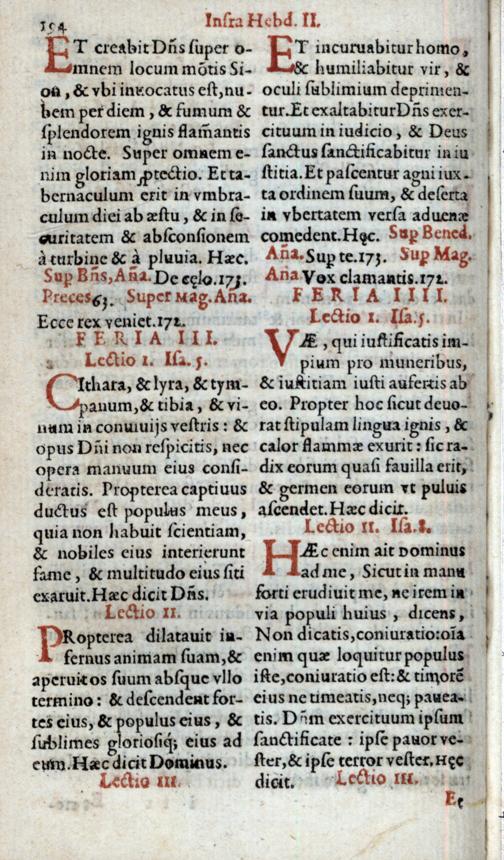 194
Infra Hebd. II.
ET creabit Dñs ſuper o-
mnem locum mõtis Si-
on, & vbi inuocatus eſt, nu-
bem per diem, & fumum &
ſplendorem ignis flam̃antis
in nocte. Super omnem e-
nim gloriam ꝓtectio. Et ta-
bernaculum erit in vmbra-
culum diei ab æſtu, & in ſe-
curitatem & abſconſionem
à turbine & à pluuia. Hæc.
Sup Bñs, Aña. De cęlo. 173.
Preces 63. Super Mag. Aña.
Ecce rex veniet. 172.
FERIA III.
Lectio I. Iſa. 5.
CIthara, & lyra, & tym-
panum, & tibia, & vi-
num in conuiuijs veſtris: &
opus Dñi non reſpicitis, nec
opera manuum eius conſi-
deratis. Propterea captiuus
ductus eſt populus meus,
quia non habuit ſcientiam,
& nobiles eius interierunt
fame, & multitudo eius ſiti
exaruit. Hæc dicit Dñs.
Lectio II.
PRopterea dilatauit in-
fernus animam ſuam, &
aperuit os ſuum abſque vllo
termino: & deſcendent for-
tes eius, & populus eius, &
ſublimes glorioſiq; eius ad
eum. Hæc dicit Dominus.
Lectio III.
ET incuruabitur homo,
& humiliabitur vir, &
oculi ſublimium deprimen-
tur. Et exaltabitur Dñs exer-
cituum in iudicio, & Deus
ſanctus ſanctificabitur in iu
ſtitia. Et paſcentur agni iux-
ta ordinem ſuum, & deſerta
in vbertatem verſa aduenæ
comedent. Hęc. Sup Bened.
Aña. Sup te. 173. Sup Mag.
Aña Vox clamantis. 172.
FERIA IIII.
Lectio I. Iſa. 5.
VÆ, qui iuſtificatis im-
pium pro muneribus,
& iuſtitiam iuſti aufertis ab
eo. Propter hoc ſicut deuo-
rat ſtipulam lingua ignis, &
calor flammæ exurit: ſic ra-
dix eorum quaſi fauilla erit,
& germen eorum vt puluis
aſcendet. Hæc dicit.
Lectio II. Iſa. 8.
HÆc enim ait Dominus
ad me, Sicut in manu
forti erudiuit me, ne irem in
via populi huius, dicens,
Non dicatis, coniuratio: oĩa
enim quæ loquitur populus
iſte, coniuratio eſt: & timorẽ
eius ne timeatis, neq; pauea-
tis. Dñm exercituum ipſum
ſanctificate: ipſe pauor ve-
ſter, & ipſe terror veſter. Hęc
dicit. Lectio III.
Eę